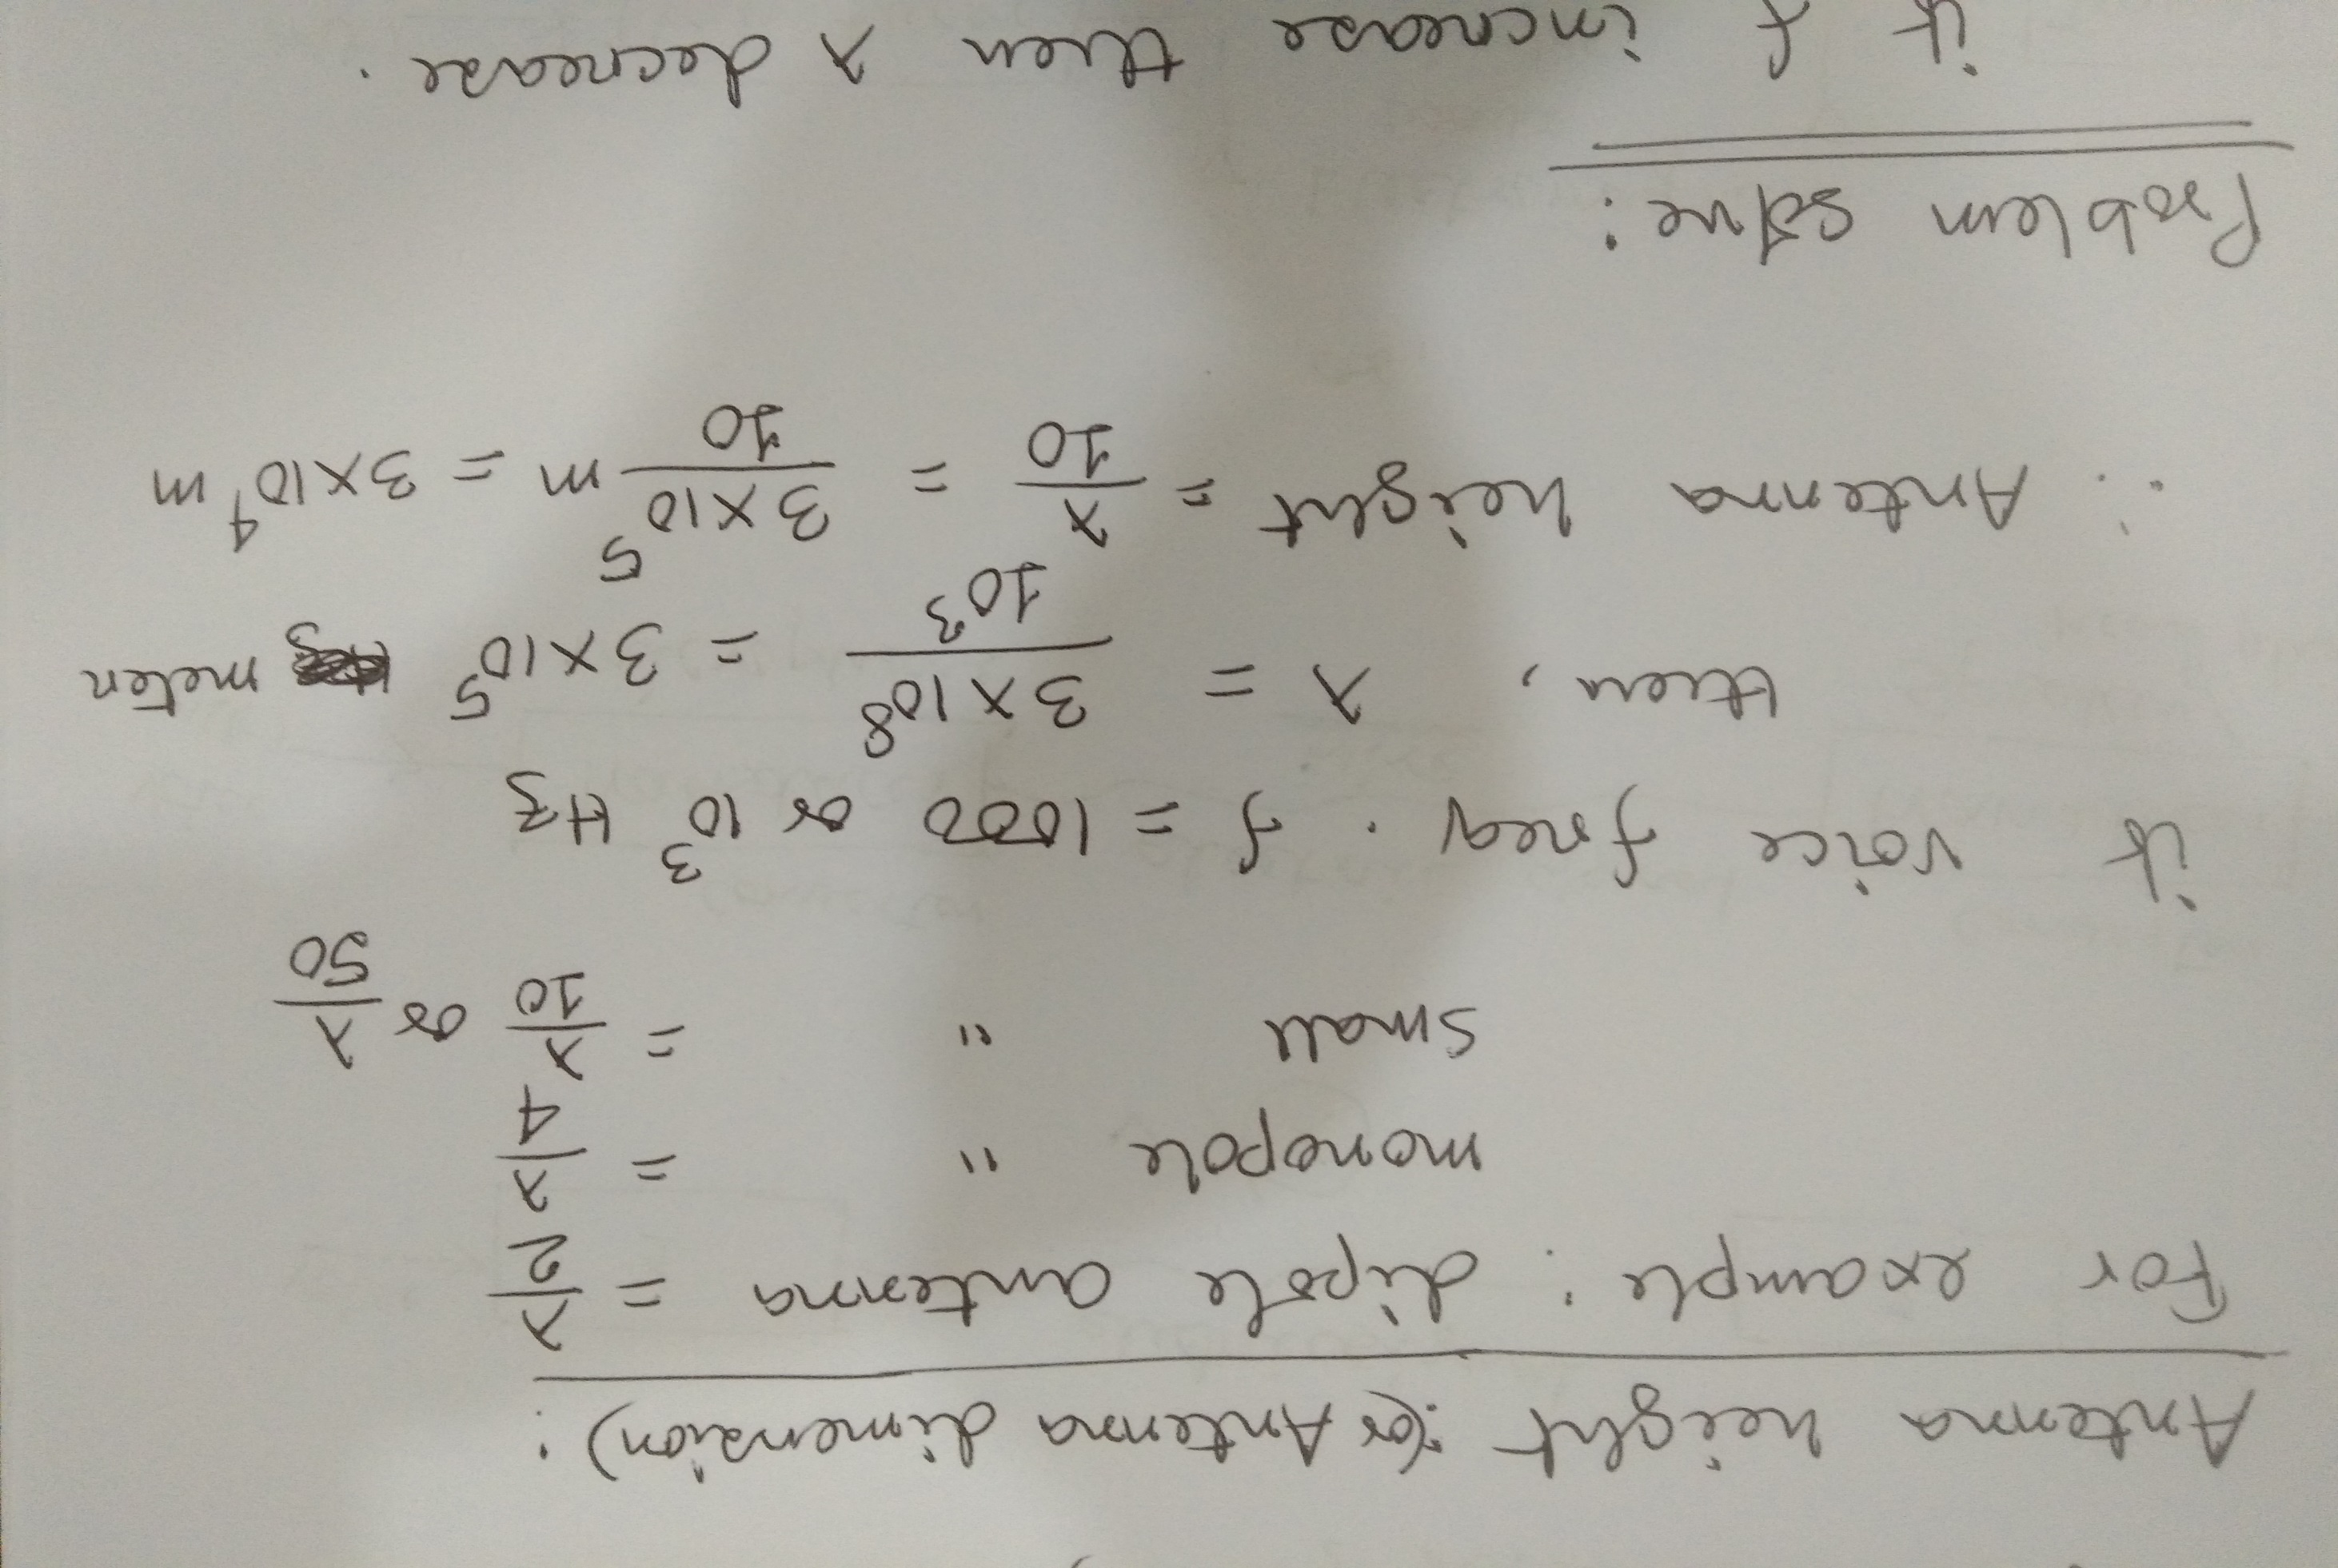 Antenna height :(or Antenna dimension) :
For example : dipole antenna = λ/2
monopole " = λ/4
small " = λ/10 or λ/50
if voice freq . f = 1000 or 10³ Hz
then, λ = 3×10⁸/10³ = 3×10⁵ meter
∴ Antenna height = λ/10 = 3×10⁵/10 m = 3×10⁴ m
Problem solve :
if f increase then λ decrease .